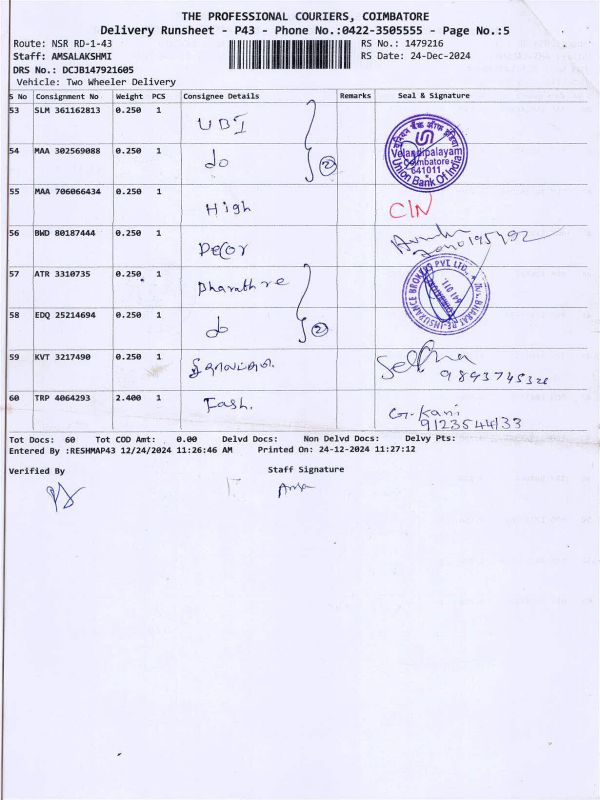 THE PROFESSIONAL COURIERS, COIMBATORE
Delivery Runsheet - P43 - Phone No.:0422-3505555 - Page No.:5
Route: NSR RD-1-43 RS No.: 1479216
Staff: AMSALAKSHMI RS Date: 24-Dec-2024
DRS No.: DCJB147921605
Vehicle: Two Wheeler Delivery
S No Consignment No Weight PCS Consignee Details Remarks Seal & Signature
53 SLM 361162813 0.250 1 UBI
54 MAA 302569088 0.250 1 do 2
Velandipalayam
Coimbatore
641011
Union Bank Of India
55 MAA 706066434 0.250 1 High C/N
56 BWD 80187444 0.250 1 Decor
57 ATR 3310735 0.250 1 Bharath re
58 EDQ 25214694 0.250 1 do 2
59 KVT 3217490 0.250 1
60 TRP 4064293 2.400 1 Fash. G-Kani
9123544133
Tot Docs: 60 Tot COD Amt: 0.00 Delvd Docs: Non Delvd Docs: Delvy Pts:
Entered By :RESHMAP43 12/24/2024 11:26:46 AM Printed On: 24-12-2024 11:27:12
Verified By Staff Signature
Amsa